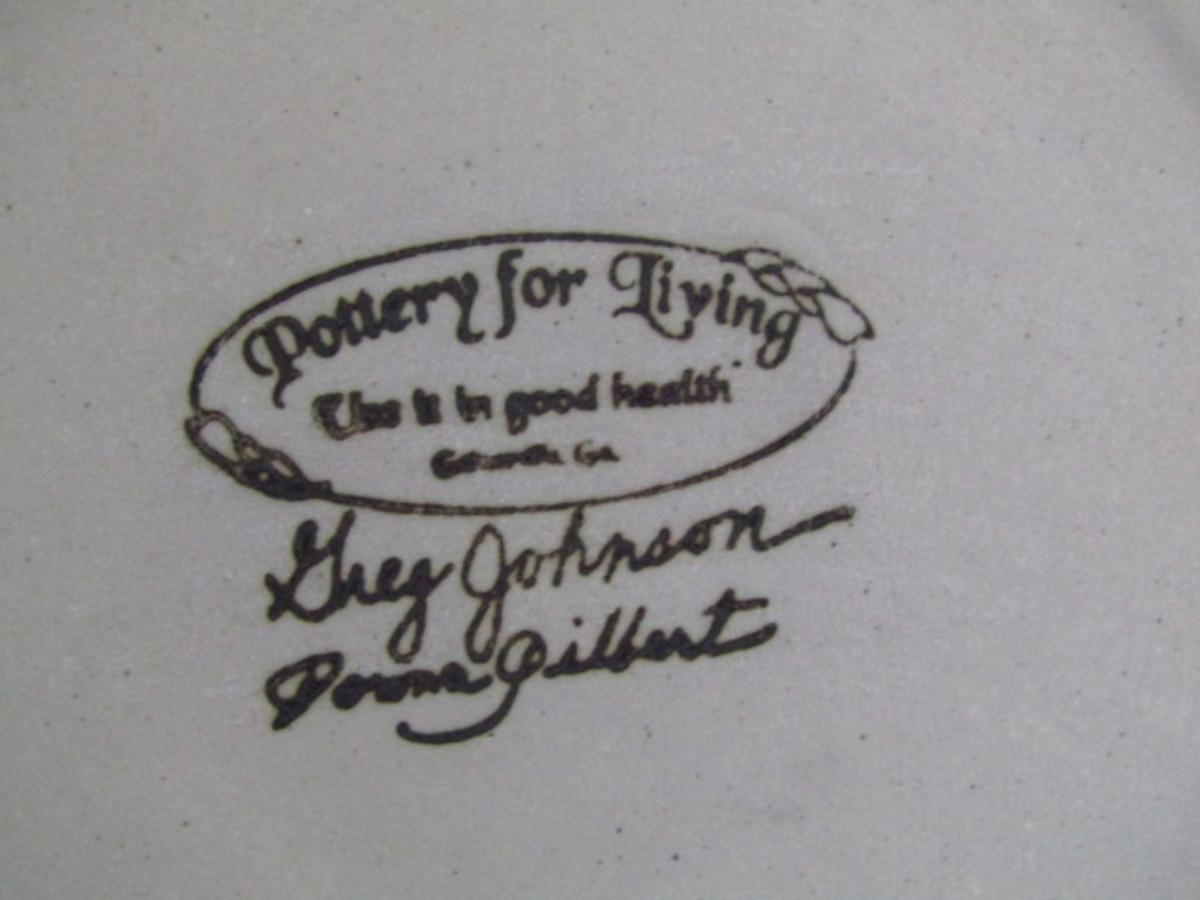 Pottery for Living
Use it in good health
Ga
Greg Johnson
Donna Gilbert